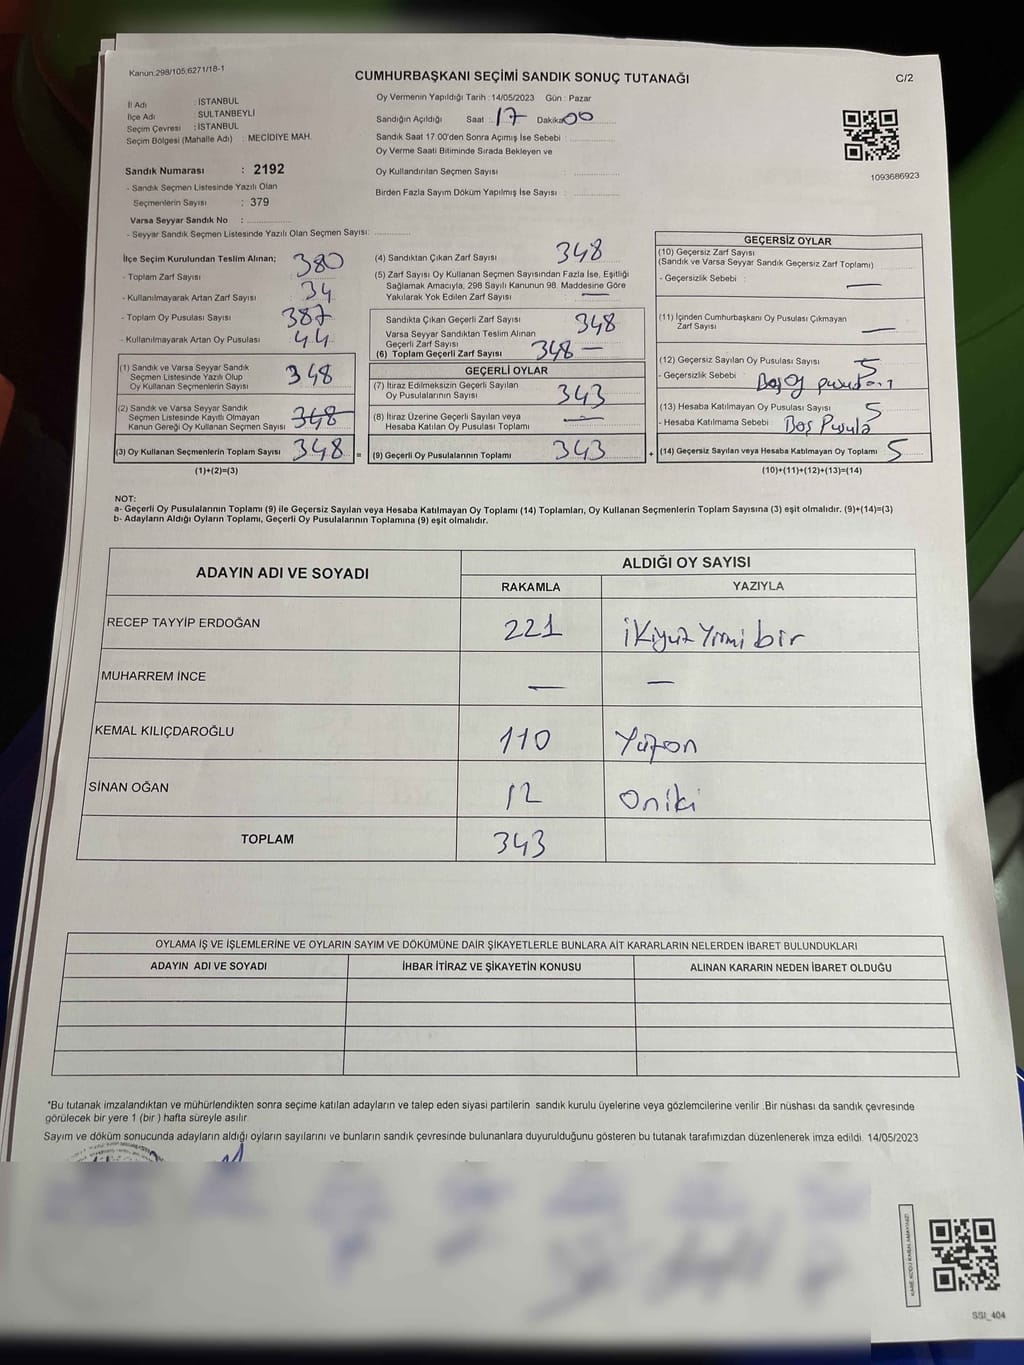 Kanun:298/105;6271/18-1
CUMHURBAŞKANI SEÇİMİ SANDIK SONUÇ TUTANAĞI
C/2
İl Adı : İSTANBUL
İlçe Adı : SULTANBEYLİ
Seçim Çevresi : İSTANBUL
Seçim Bölgesi (Mahalle Adı) : MECİDİYE MAH.
Sandık Numarası : 2192
- Sandık Seçmen Listesinde Yazılı Olan
Seçmenlerin Sayısı : 379
Varsa Seyyar Sandık No :
- Seyyar Sandık Seçmen Listesinde Yazılı Olan Seçmen Sayısı:
Oy Vermenin Yapıldığı Tarih : 14/05/2023 Gün : Pazar
Sandığın Açıldığı Saat : 17 Dakika 00
Sandık Saat 17.00'den Sonra Açımış İse Sebebi :
Oy Verme Saati Bitiminde Sırada Bekleyen ve
Oy Kullandırılan Seçmen Sayısı :
Birden Fazla Sayım Döküm Yapılmış İse Sayısı :
1093686923
İlçe Seçim Kurulundan Teslim Alınan;
- Toplam Zarf Sayısı 380
- Kullanılmayarak Artan Zarf Sayısı 34
- Toplam Oy Pusulası Sayısı 387
- Kullanılmayarak Artan Oy Pusulası 44
(1) Sandık ve Varsa Seyyar Sandık
Seçmen Listesinde Yazılı Olup
Oy Kullanan Seçmenlerin Sayısı 348
(2) Sandık ve Varsa Seyyar Sandık
Seçmen Listesinde Kayıtlı Olmayan
Kanun Gereği Oy Kullanan Seçmen Sayısı 348
(3) Oy Kullanan Seçmenlerin Toplam Sayısı 348 =
(1)+(2)=(3)
(4) Sandıktan Çıkan Zarf Sayısı 348
(5) Zarf Sayısı Oy Kullanan Seçmen Sayısından Fazla İse, Eşitliği
Sağlamak Amacıyla, 298 Sayılı Kanunun 98. Maddesine Göre
Yakılarak Yok Edilen Zarf Sayısı —
Sandıkta Çıkan Geçerli Zarf Sayısı 348
Varsa Seyyar Sandıktan Teslim Alınan
Geçerli Zarf Sayısı —
(6) Toplam Geçerli Zarf Sayısı 348
GEÇERLİ OYLAR
(7) İtiraz Edilmeksizin Geçerli Sayılan
Oy Pusulalarının Sayısı 343
(8) İtiraz Üzerine Geçerli Sayılan veya
Hesaba Katılan Oy Pusulası Toplamı —
(9) Geçerli Oy Pusulalarının Toplamı 343 +
GEÇERSİZ OYLAR
(10) Geçersiz Zarf Sayısı
(Sandık ve Varsa Seyyar Sandık Geçersiz Zarf Toplamı)
- Geçersizlik Sebebi : —
(11) İçinden Cumhurbaşkanı Oy Pusulası Çıkmayan
Zarf Sayısı —
(12) Geçersiz Sayılan Oy Pusulası Sayısı 5
- Geçersizlik Sebebi Boş oy pusulası
(13) Hesaba Katılmayan Oy Pusulası Sayısı 5
- Hesaba Katılmama Sebebi : Boş Pusula
(14) Geçersiz Sayılan veya Hesaba Katılmayan Oy Toplamı 5
(10)+(11)+(12)+(13)=(14)
NOT:
a- Geçerli Oy Pusulalarının Toplamı (9) ile Geçersiz Sayılan veya Hesaba Katılmayan Oy Toplamı (14) Toplamları, Oy Kullanan Seçmenlerin Toplam Sayısına (3) eşit olmalıdır. (9)+(14)=(3)
b- Adayların Aldığı Oyların Toplamı, Geçerli Oy Pusulalarının Toplamına (9) eşit olmalıdır.
ADAYIN ADI VE SOYADI
ALDIĞI OY SAYISI
RAKAMLA YAZIYLA
RECEP TAYYİP ERDOĞAN 221 ikiyüz Yirmi bir
MUHARREM İNCE — —
KEMAL KILIÇDAROĞLU 110 Yüzon
SİNAN OĞAN 12 Oniki
TOPLAM 343
OYLAMA İŞ VE İŞLEMLERİNE VE OYLARIN SAYIM VE DÖKÜMÜNE DAİR ŞİKAYETLERLE BUNLARA AİT KARARLARIN NELERDEN İBARET BULUNDUKLARI
ADAYIN ADI VE SOYADI İHBAR İTİRAZ VE ŞİKAYETİN KONUSU ALINAN KARARIN NEDEN İBARET OLDUĞU
*Bu tutanak imzalandıktan ve mühürlendikten sonra seçime katılan adayların ve talep eden siyasi partilerin sandık kurulu üyelerine veya gözlemcilerine verilir .Bir nüshası da sandık çevresinde
görülecek bir yere 1 (bir ) hafta süreyle asılır.
Sayım ve döküm sonucunda adayların aldığı oyların sayılarını ve bunların sandık çevresinde bulunanlara duyurulduğunu gösteren bu tutanak tarafımızdan düzenlenerek imza edildi. 14/05/2023
KARE KODU KARALAMAYINIZ!
SSI_404